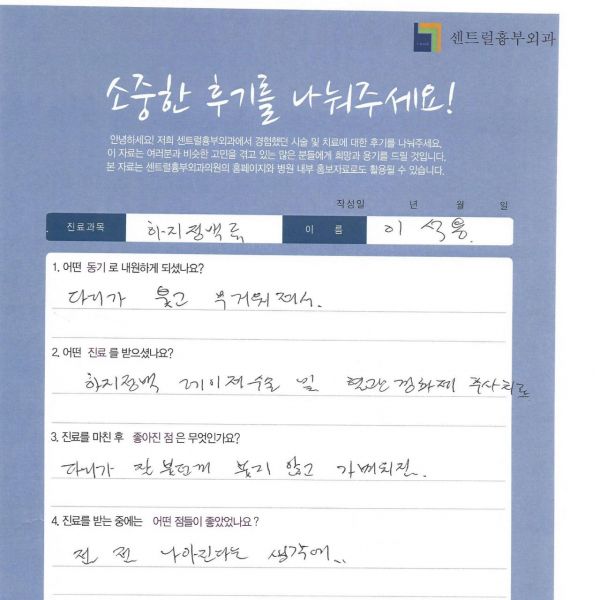 센트럴흉부외과
소중한 후기를 나눠주세요!
안녕하세요! 저희 센트럴흉부외과에서 경험했던 시술 및 치료에 대한 후기를 나눠주세요.
이 자료는 여러분과 비슷한 고민을 겪고 있는 많은 분들에게 희망과 용기를 드릴 것입니다.
본 자료는 센트럴흉부외과의원의 홈페이지와 병원 내부 홍보자료로도 활용될 수 있습니다.
작성일 년 월 일
진료과목 하지정맥류 이 름 이 석용
1. 어떤 동기 로 내원하게 되셨나요?
다리가 붓고 무거워져서.
2. 어떤 진료 를 받으셨나요?
하지정맥 레이저수술 및 혈관경화제 주사치료
3. 진료를 마친 후 좋아진 점 은 무엇인가요?
다리가 잘 붓던게 붓지 않고 가벼워진..
4. 진료를 받는 중에는 어떤 점들이 좋았었나요?
점점 나아진다는 생각에..